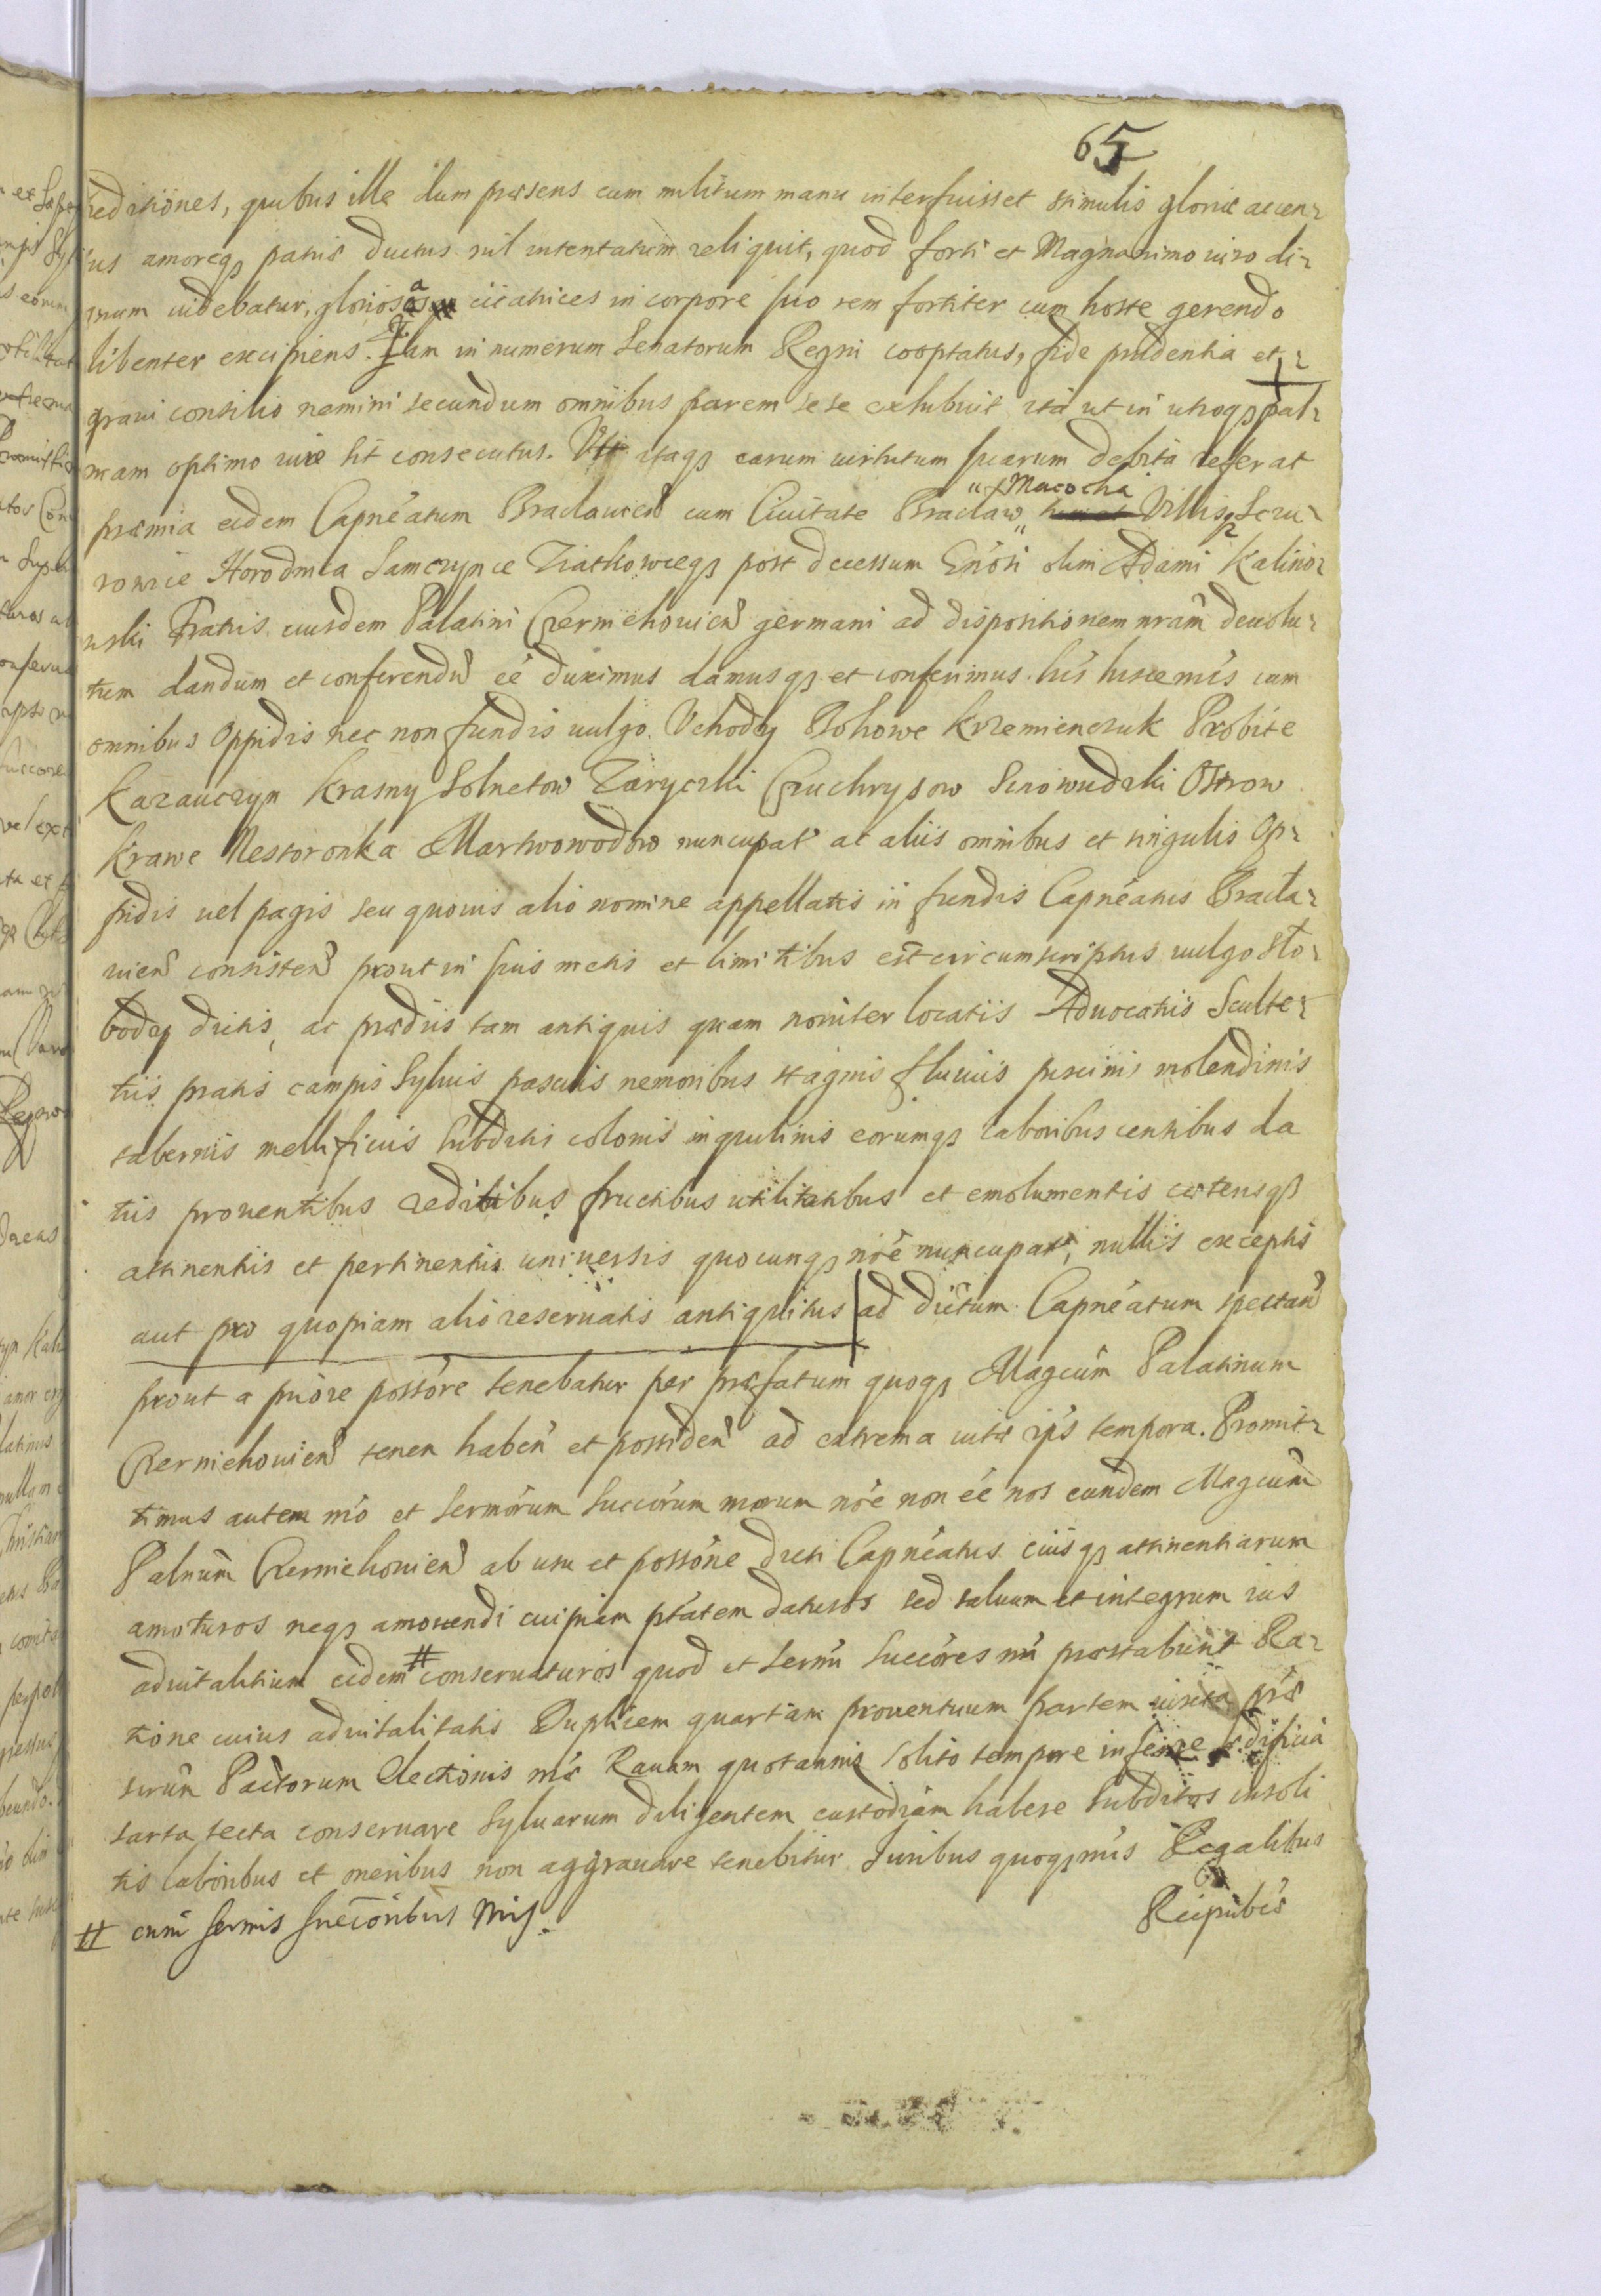 65
peditiones, quibus ille dum præsens cum militum manu interfuisset stimulis gloriæ accen-
sus amoreqз patriæ ductus nil intentatum reliquit, quod forti et Magnanimo uiro di-
gnum uidebatur, gloriosas cicatrices in corpore suo rem fortiter cum hoste gerendo
libenter excipiens. Jam in numerum Senatorum Regni cooptatus, fide prudentia et
graui consilio nemini secundum omnibus parem sese exhibuit ita ut in utroqз pal-
mam optimo iure sit consecutus. Vt itaqз earum uirtutum suarum debita referat
præmia eidem Capnéatum Braclauien cum Ciuitate Braclaw Macocha Villisqз Seru-
rowice Horodnica Samczynce Ziatkowceqз post decessum Gnósi olim Adami Kalino-
wski Fratris eiusdem Palatini Czerniehouien germani ad dispositionem nram deuolu-
tum dandum et conferendu eé duximus damusqз et conferimus hisce nris cum
omnibus Oppidis nec non fundis uulgo Vchody Bohowe Krzemienczuk Probite
Kazauczyn Krasny Solnetow Taryczki Czuchrysow Sinowudzki Ostrow
Krawe Nestoronka Martwowodow nuncupat ac aliis omnibus et singulis Op-
pidis uel pagis seu quouis alio nomine appellatis in fundis Capnéatus Bracla-
uien consisten prout in suis metis et limitibus est circumscriptus uulgo Sło-
body dictis, ac prædiis tam antiquis quam nouiter locatis Aduocatiis Sculte-
tiis pratis campis Syluis pascuis nemoribus stagnis fluuiis piscinis molendinis
tabernis mellificiis subditis colonis inquilinis eorumqз laboribus censibus da
tiis prouentibus reditibus fructibus utilitatibus et emolumentis cæterisqз
attinentiis et pertinentiis uniuersis quocunqз nóe nuncupat, nullis exceptis
aut pro quopiam alio reseruatis antiquitus ad dictum Capnéatum spectan
prout a priore possóre tenebatur per præfatum quoqз Magcum Palatinum
Czerniehouien tenen haben et possiden ad extrema uitæ ips tempora. Promit-
timus autem nró et Sermórum Succórum nrorum nóe non eé nos eundem Magcum
Palnum Czerniehouien ab usu et possóne dicti Capnéatus eiusqз attinentiarum
amoturos neqз amouendi cuipiam ptátem daturos sed saluum et integrum ius
aduitalitium eidem # conseruaturos quod et Sermi Succóres nri præstabunt Ra-
tione cuius aduitalitatis Duplicem quartam prouentuum partem iuxta præ
scrum Pactorum Electionis nræ Rauam quotannis solito tempore inferre ædificia
sarta tecta conseruare Syluarum diligentem custodiam habere Subditos insoli
tis laboribus et oneribus non aggrauare tenebitur. Juribus quoqз nris Regalibus
Reipubcæ
# cum sermis succoribus nris.